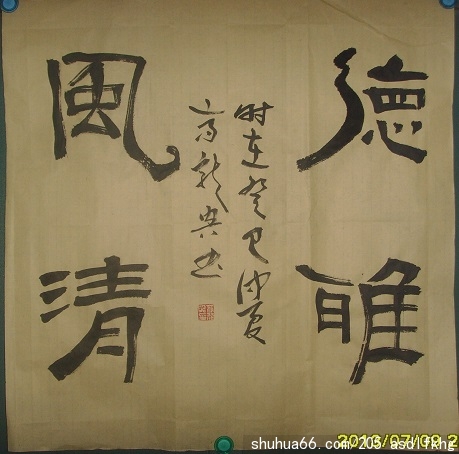 德雅
風清
时在癸巳仲夏
高书
shuhua66.com/205 asdlfkhg
2013/07/09 2